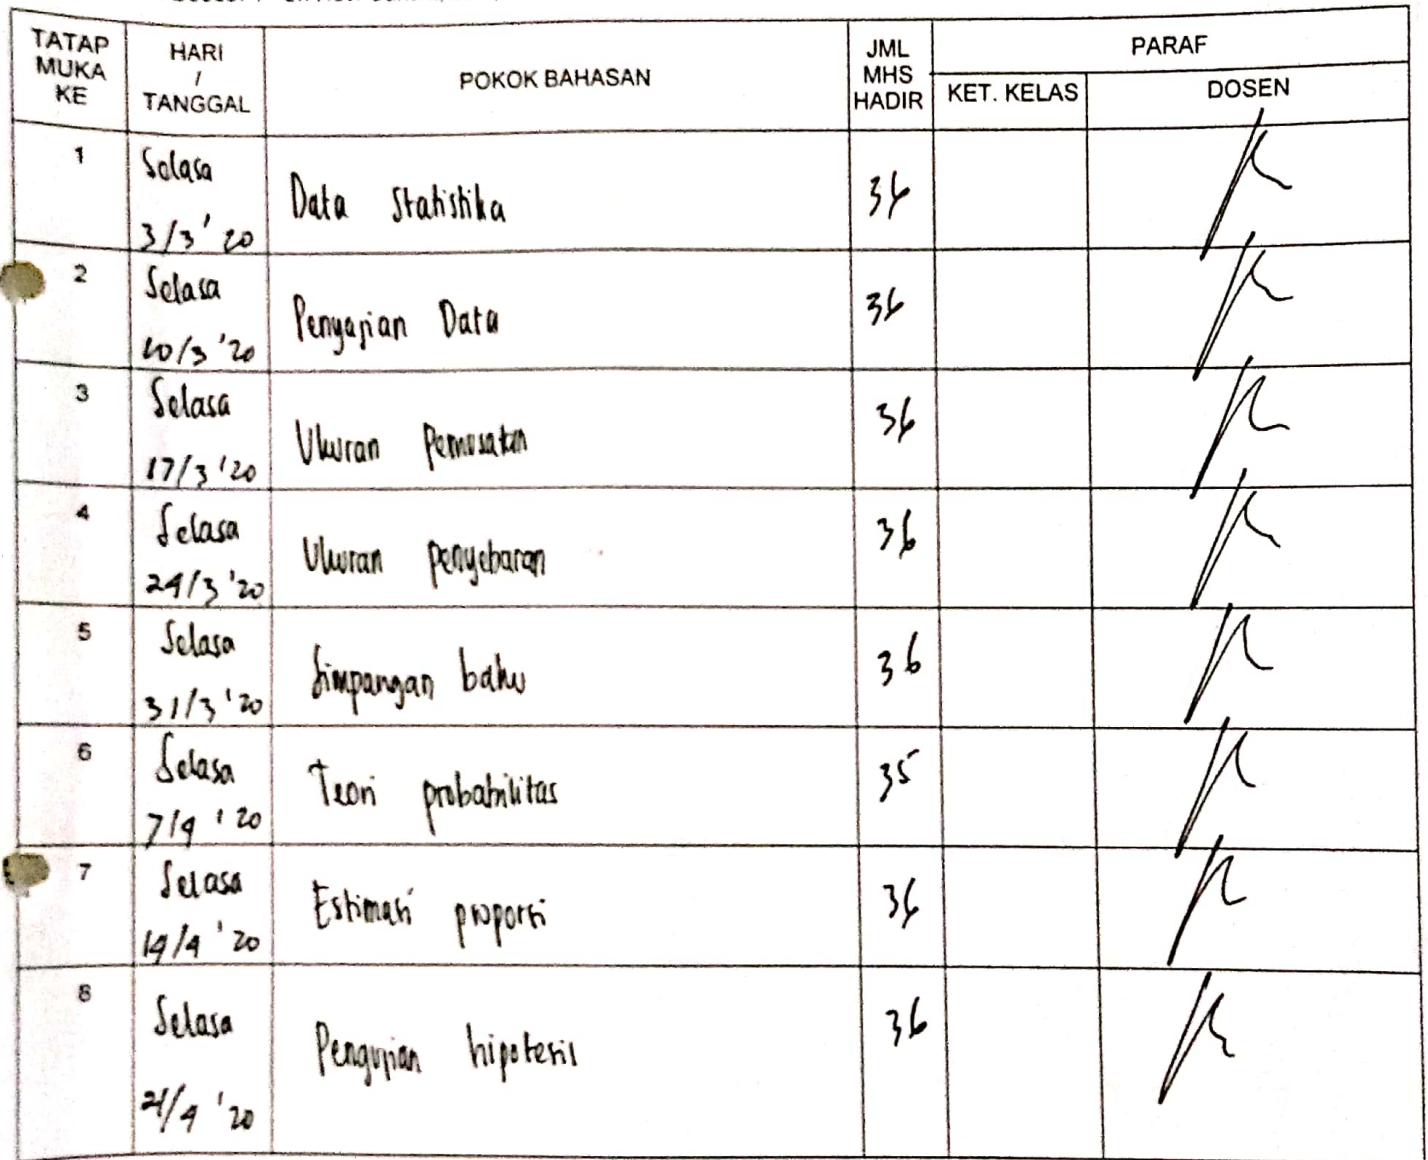 TATAP
MUKA
KE
HARI
/
TANGGAL
POKOK BAHASAN
JML
MHS
HADIR
PARAF
KET. KELAS
DOSEN
1
Selasa
3/3 '20
Data Statistika
36
2
Selasa
10/3 '20
Penyajian Data
36
3
Selasa
17/3 '20
Ukuran Pemusatan
36
4
Selasa
24/3 '20
Ukuran penyebaran
36
5
Selasa
31/3 '20
Simpangan baku
36
6
Selasa
7/4 '20
Teori probabilitas
35
7
Selasa
14/4 '20
Estimasi proporsi
36
8
Selasa
21/4 '20
Pengujian hipotesis
36